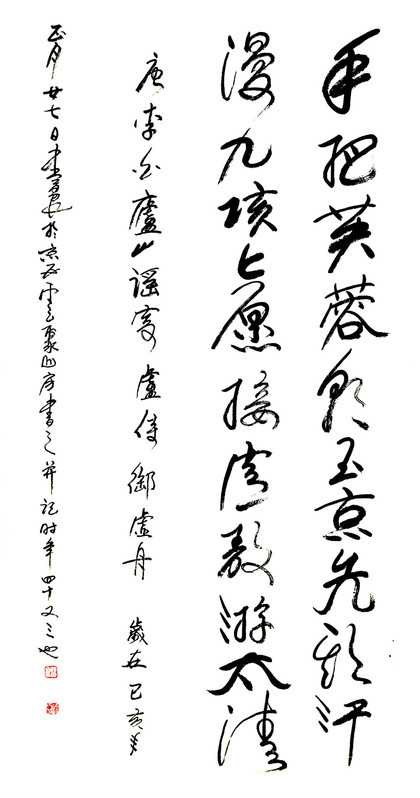 手把芙蓉朝玉京先期汗
漫九垓上愿接盧敖游太清
唐李白廬山謡寄盧侍御虚舟 歲在己亥年
正月廿七日李於京西雲山房書之并記时年四十又三也